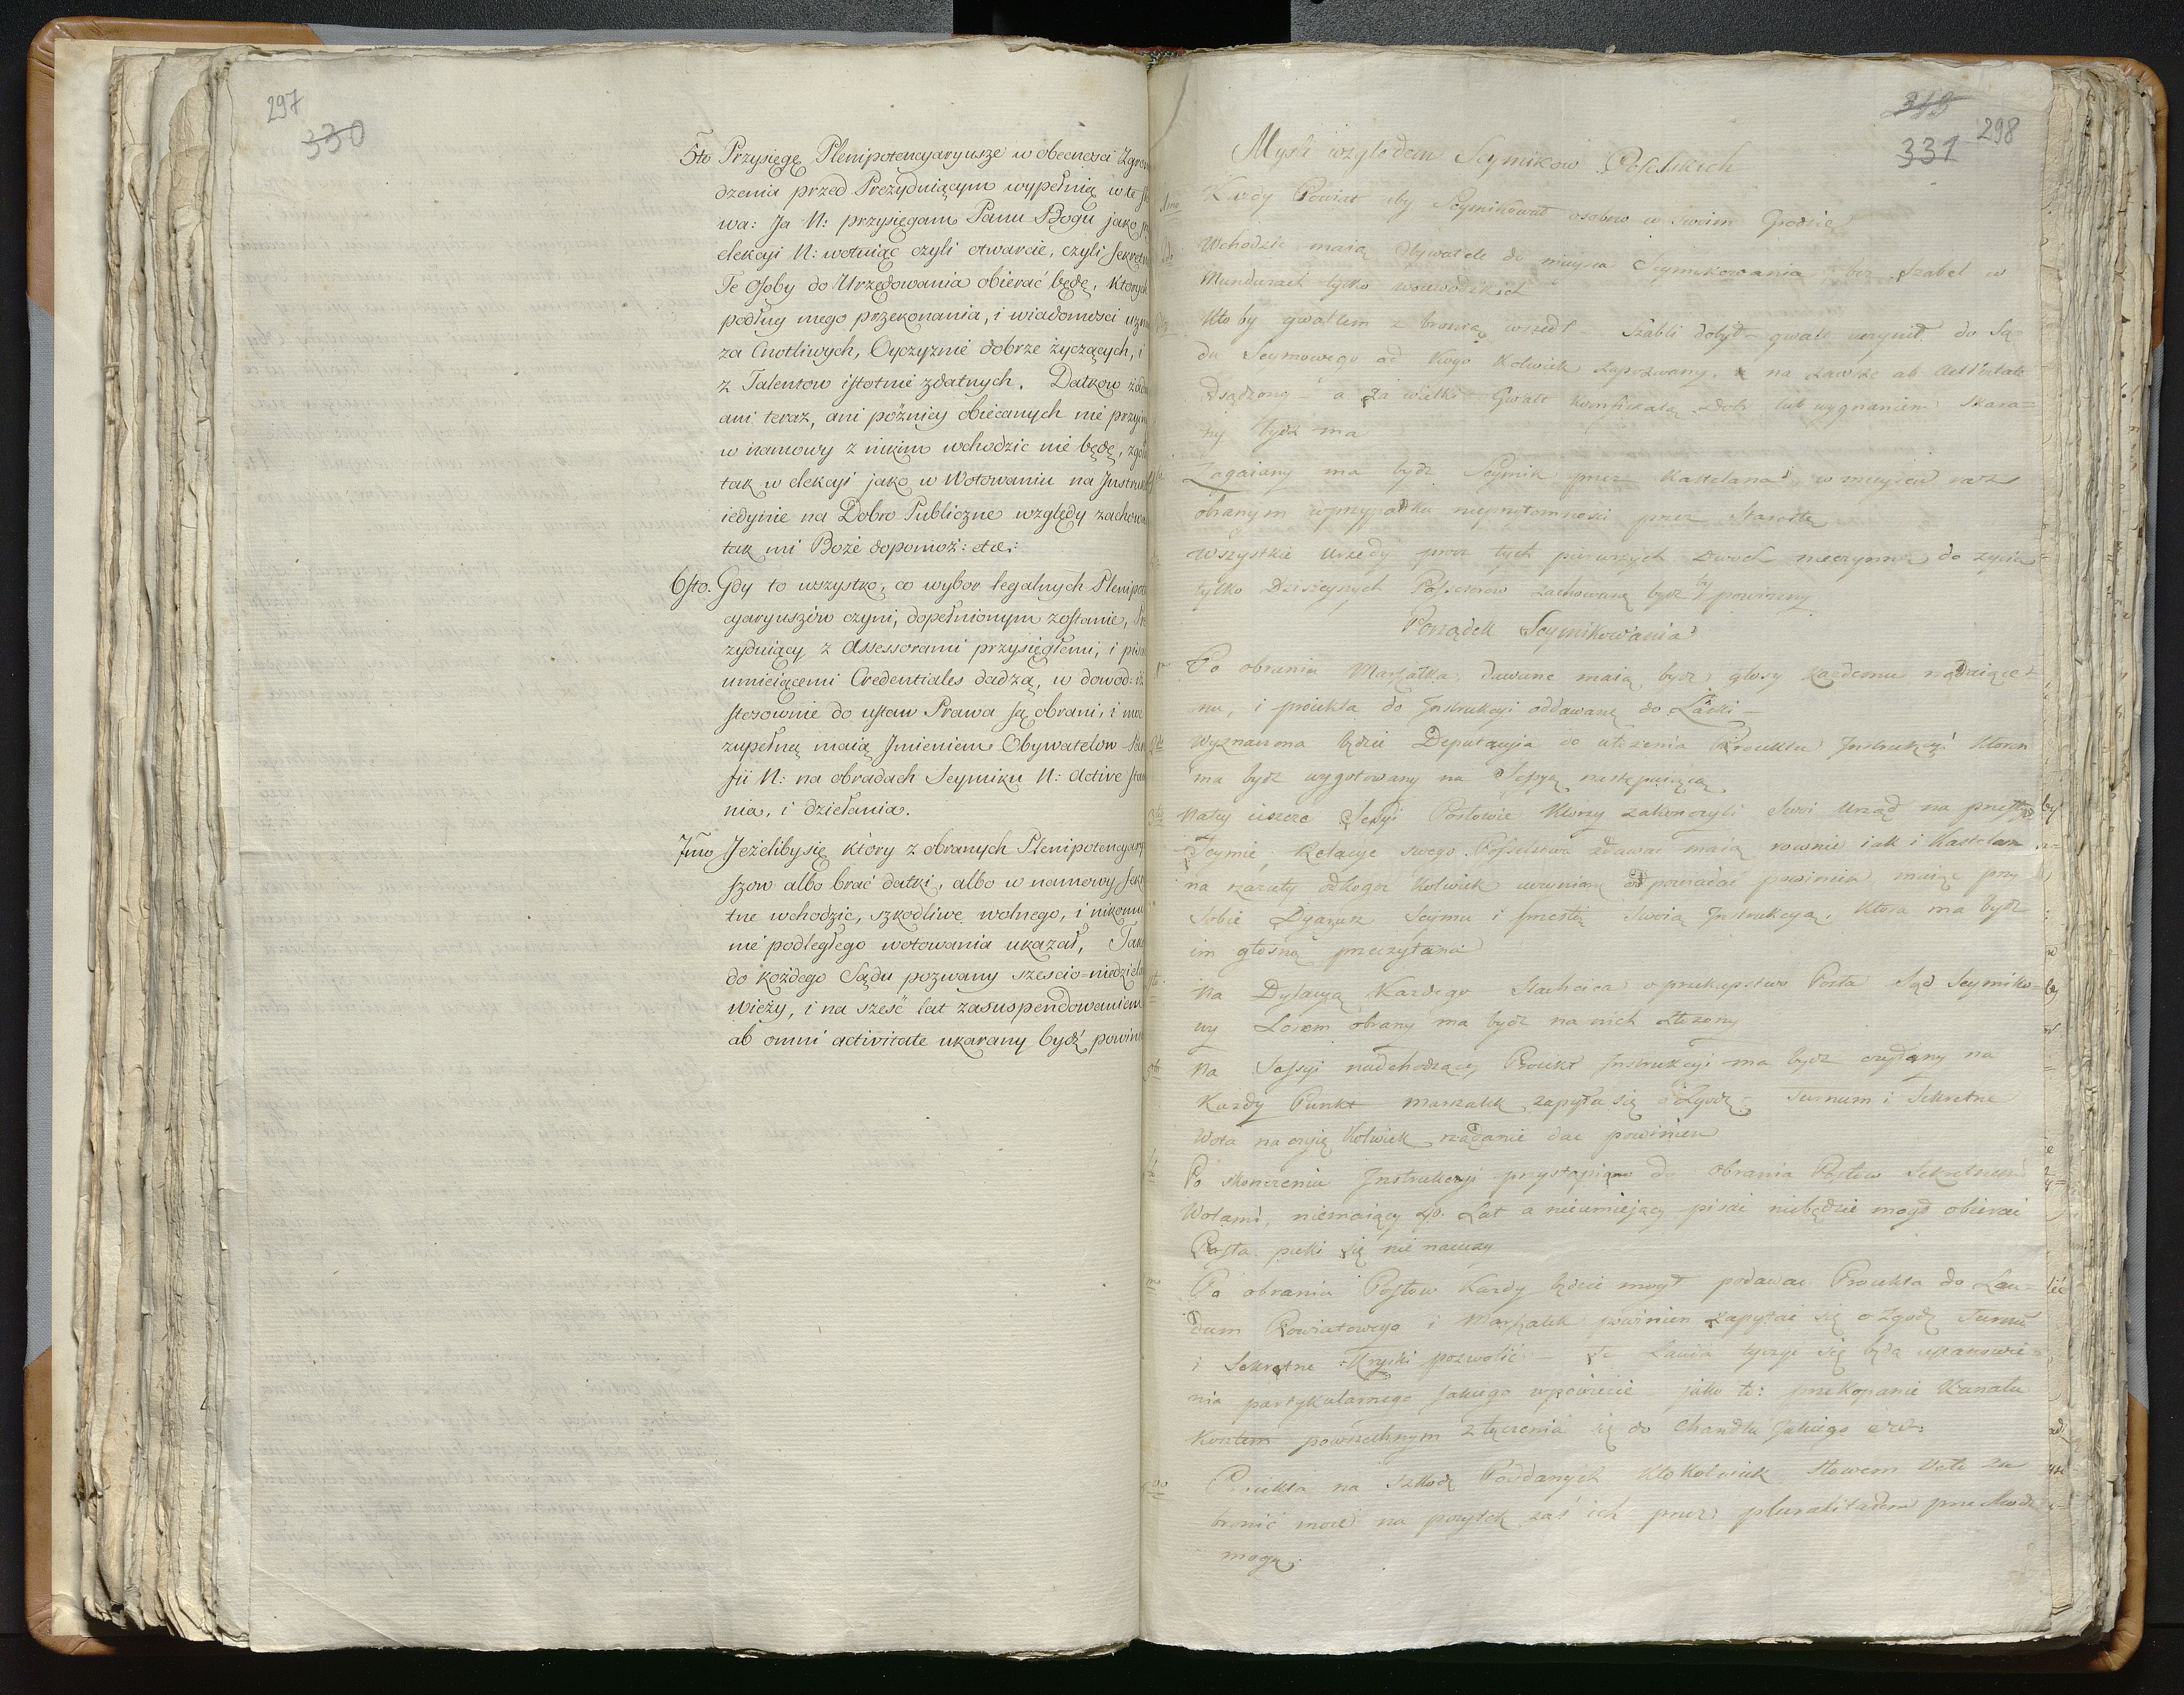 297
330
5to Przysięgę Plenipotencyaryusze w obecnosci Zgrom
dzenia przed Prezyduiącym wypełnią w te sł
wa: Ja N: przysięgam Panu Bogu jako
elekcyi N: wotuiąc czyli otwarcie, czyli sekretn
Te osoby do Urzędowania obierać będę, których
podług mego przekonania, i wiadomosci uzna
za Cnotliwych, Oyczyznie dobrze życzących, i
z Talentow istotnie zdatnych. Datkow żadn
ani teraz, ani poźniey obiecanych nie przyim
w namowy z nikim wchodzic nie będę, zgoł
tak w elekcyi jako w Wotowaniu na Instruk
iedynie na Dobro Publiczne względy zachowa
tak mi Boże dopomoż: etc:
6sto. Gdy to wszystko, co wybor legalnych Plenipote
cyaryuszów czyni, dopełnionym zostanie, Pre
zyduiący z Assessorami przysięgłemi, i pisa
umieiącemi Credentiales dadzą, w dowod: iż
stosownie do ustaw Prawa są obrani, i moc
zupełną maią Jmieniem Obywatelow Para
fii N: na obradach Seymiku N: active sta
nia, i działania.
7mo Jeżeliby się który z obranych Plenipotencyary
szow albo brać datki, albo w namowy sekr
tne wchodzic, szkodliwe wolnego, i nikomu
nie podległego wotowania ukazał, Taki
do każdego Sądu pozwany szescio-niedziel
wieży, i na szesć lat zasuspendowaniem
ab omni activitate ukarany bydź powini
331
298
Mysli względem Seymikow Poselskich
1mo Każdy Powiat aby Seymikował osobno w swoim Grodzie
Wchodzic maią Obywatele do mieysca Seymikowania bez Szabel w
Mundurach tylko woiewodzkich
Kto by gwałtem z bronią wszedł – Szabli dobył – gwałt uczynił do Są
du Seymowego od kogo kolwiek zapozwany, na zawsze ab Activitate
Odsądzony – a za wielki Gwałt konfiskatą Dobr lub wygnaniem skara=
ny bydz ma
Zagaiany ma bydz Seymik przez Kasztelana, w mieyscu
obranym w przypadku nieprzytomnosci przez Starostę
Wszystkie Urzędy procz tych pierwszych Dwoch nieczynne do życia
tylko Dzisieyszych Possessorow zachowane bydz by powinny
Porządek Seymikowania
Po obraniu Marszałka, dawane maią bydz głosy każdemu żądaiące=
mu, i proiekta do Instrukcyi oddawane do Laski –
2do Wyznaczona będzie Deputacyia do ułożenia Proiektu Instrukcyi który
ma bydz wygotowany na Sessyą następuiącą
3tio Na tey ieszcze Sessyi Posłowie ktorzy zakonczyli swoi Urząd na przeszłym
Seymie, Relacye swego Poselstwa zdawac maią rownie iak i Kasztelan
na zarzuty odkogoz kolwiek uczynione odpowiadać powinien maiąc przy
sobie Dyaryusz Seymu i przeszłą swoią Instrukcyą, ktora ma bydz
im głosno przeczytana
Na Dylacyą Każdego Szlachcica o przekupstwo Posła Sąd Seymiko=
wy Losem obrany ma bydz na nich złożony
5to Na Sessyi nadchodzącey Proiekt Instrukcyi ma bydz czytany na
Każdy Punkt marszałek zapyta się o Zgodę – Turnum i Sekretne
Wota na czyie kolwiek rządanie dac powinien
Po skonczeniu Instrukcyi przystąpiono do obrania Posłow Sekretnemi
Wotami, niemaiący 40. Lat a nieumiejący pisac niebędzie mogł obierac
Posła puki się nie nauczy
Po obraniu Posłow Każdy będzie mogł podawac Proiekta do Lau=
dum Powiatowego i Marszałek powinien zapytac się o Zgodę Turnū
i Sekretne Kryski pozwolić – Te Lauda tyczyc się będą ustanowie=
nia partykularnego jakiego w powiecie – jako to: przekopanie Kanału
Kosztem powszechnym złączenia się do Chandlu jakiego etc:
Proiekta na szkodę Poddanych Ktokolwiek słowem Veto za
bronić może na pożytek zaś ich przez pluralitatem przechodz
mogą.